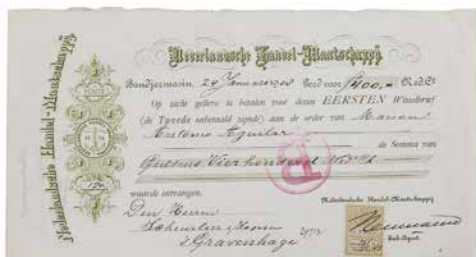 Nederlandsche Handel-Maatschappij
Nederlandsche Handel-Maatschappij
Bandjermasin, 24 Januari Goed voor ƒ400,= N. Ct
Op zicht gelieve te betalen voor dezen EERSTEN Wisselbrief
(de Tweede onbetaald zynde) aan de order van
Antonio Aguilar
de Somma van
Guldens Vierhonderd Ned. Ct.
waarde ontvangen.
Nederlandsche Handel-Maatschappij
Den Heeren
Scheurleer & Zoonen
's Gravenhage
Sub-Agent